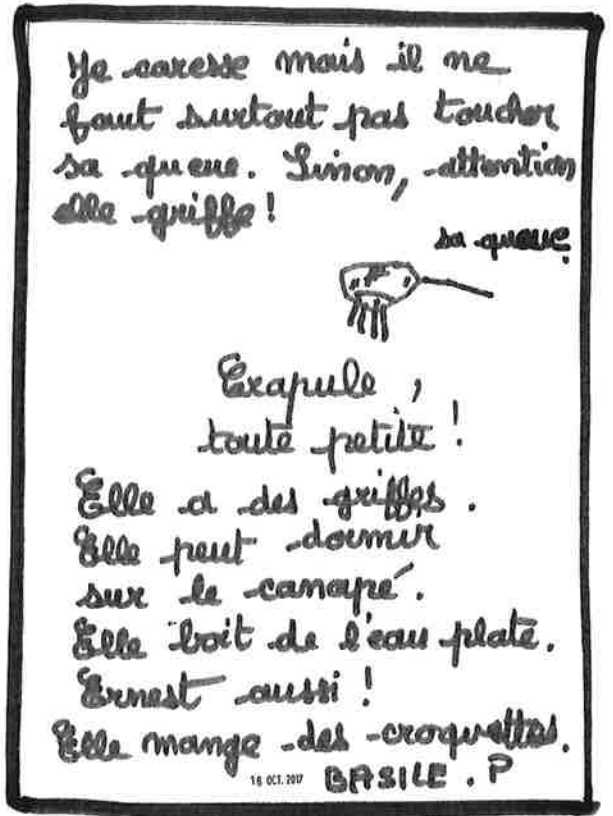 Je caresse mais il ne
faut surtout pas toucher
sa queue. Sinon, attention
elle griffe!
sa queue
Crapule,
toute petite!
Elle a des griffes.
Elle peut dormir
sur le canapé.
Elle boit de l'eau plate.
Ernest aussi!
Elle mange des croquettes.
16 OCT. 2017
BASILE. P